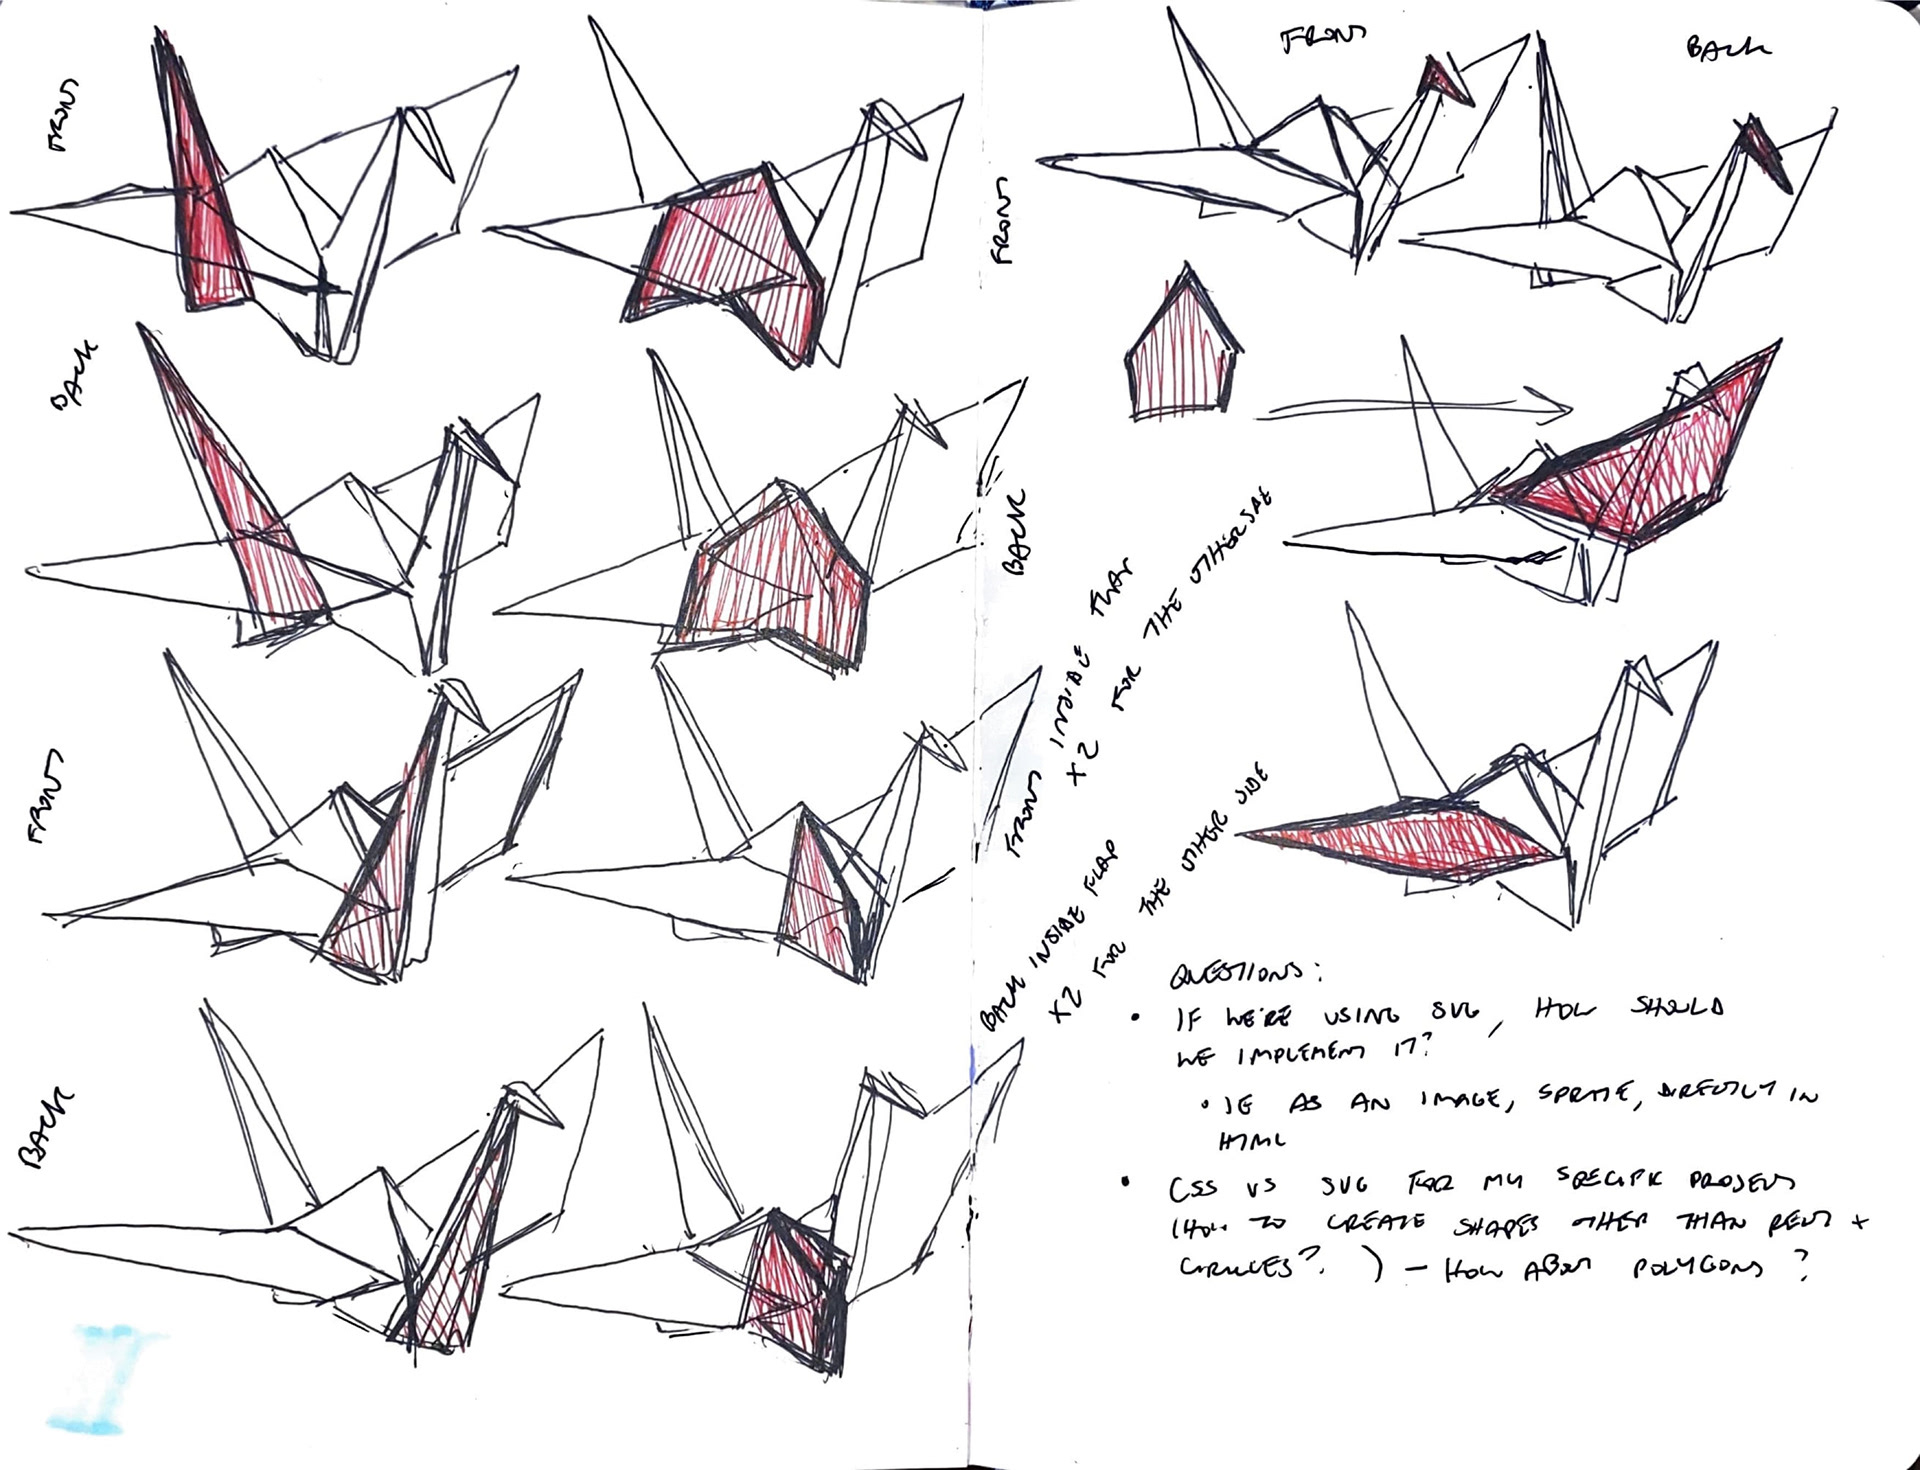 FRONT
BACK
FRONT
BACK
FRONT
BACK
FRONT
BACK
FRONT INSIDE FLAP
X2 FOR THE OTHERSIDE
BACK INSIDE FLAP
X2 FOR THE OTHER SIDE
QUESTIONS:
• IF WE'RE USING SVG, HOW SHOULD
WE IMPLEMENT IT?
• IE AS AN IMAGE, SPRITE, DIRECTLY IN
HTML
• CSS VS SVG FOR MY SPECIFIC PROJECT
(HOW TO CREATE SHAPES OTHER THAN RECT +
CIRCLES?) - HOW ABOUT POLYGONS?